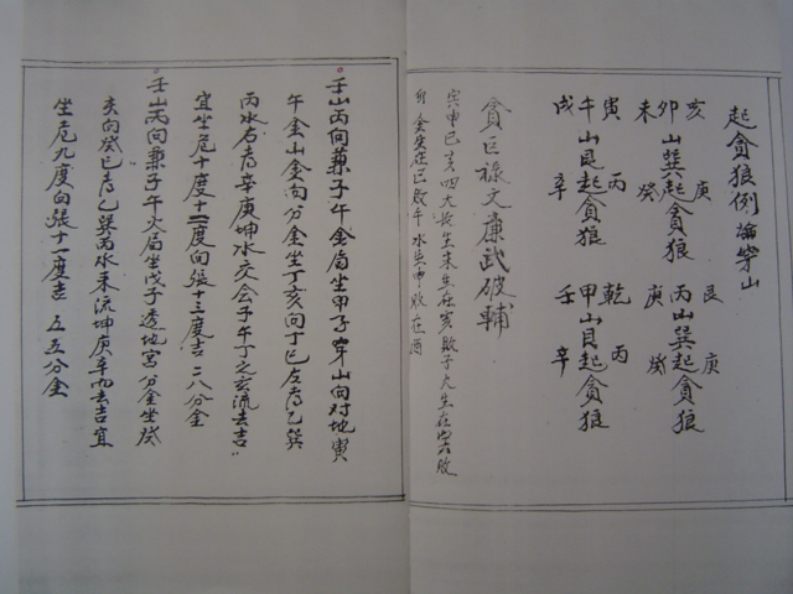 起貪狼例論穿山
亥卯未山巽起貪狼 庚癸
艮丙庚山巽起貪狼 庚癸
寅午戌山艮起貪狼 丙辛
乾甲壬山艮起貪狼 丙辛
貪巨祿文廉武破輔
寅申巳亥四大長生木生在亥敗子火生在寅敗
卯金生在巳敗午水生申敗在酉
壬山丙向兼子午金局坐甲子穿山向对地寅
午金山金向分金坐丁亥向丁巳左亯乙巽
丙水右亯辛庚坤水交会于午丁之亥流去吉
宜坐危十度十二度向張十三度吉二八分金
壬山丙向兼子午火局坐戊子透地宮分金坐癸
亥向癸巳亯乙巽丙水来流坤庚辛而去吉宜
坐危九度向張十一度吉 五五分金